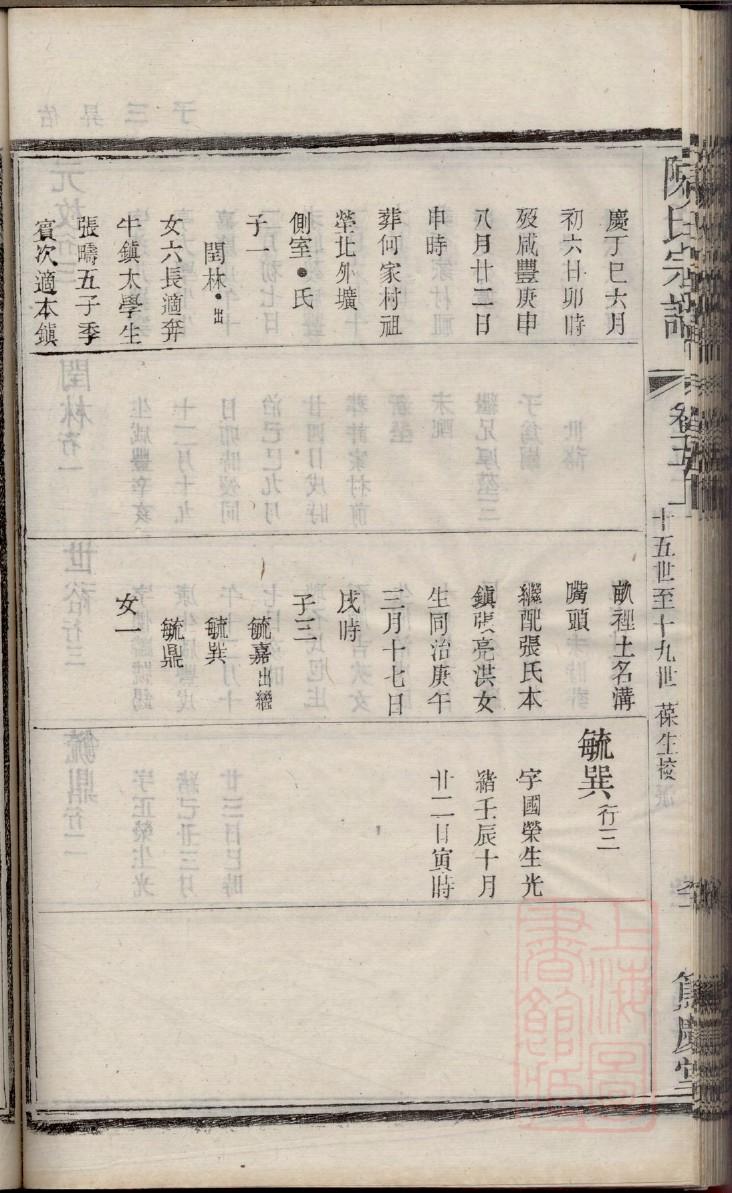 陳氏宗譜
卷五
十五世至十九世 葆生校
慶丁巳六月
初六日卯時
歿咸豐庚申
八月廿二日
申時
葬何家村祖
塋北外壙
側室●氏
子一
閏林●出
女六長適奔
牛鎮太學生
張疇五子季
賓次適本鎮
畝裡土名溝
嘴頭
繼配張氏本
鎮張亮洪女
生同治庚午
三月十七日
戌時
子三
毓嘉出繼
毓巽
毓鼎
女一
毓巽行三
字國榮生光
緒壬辰十月
廿二日寅時
上海圖書館藏